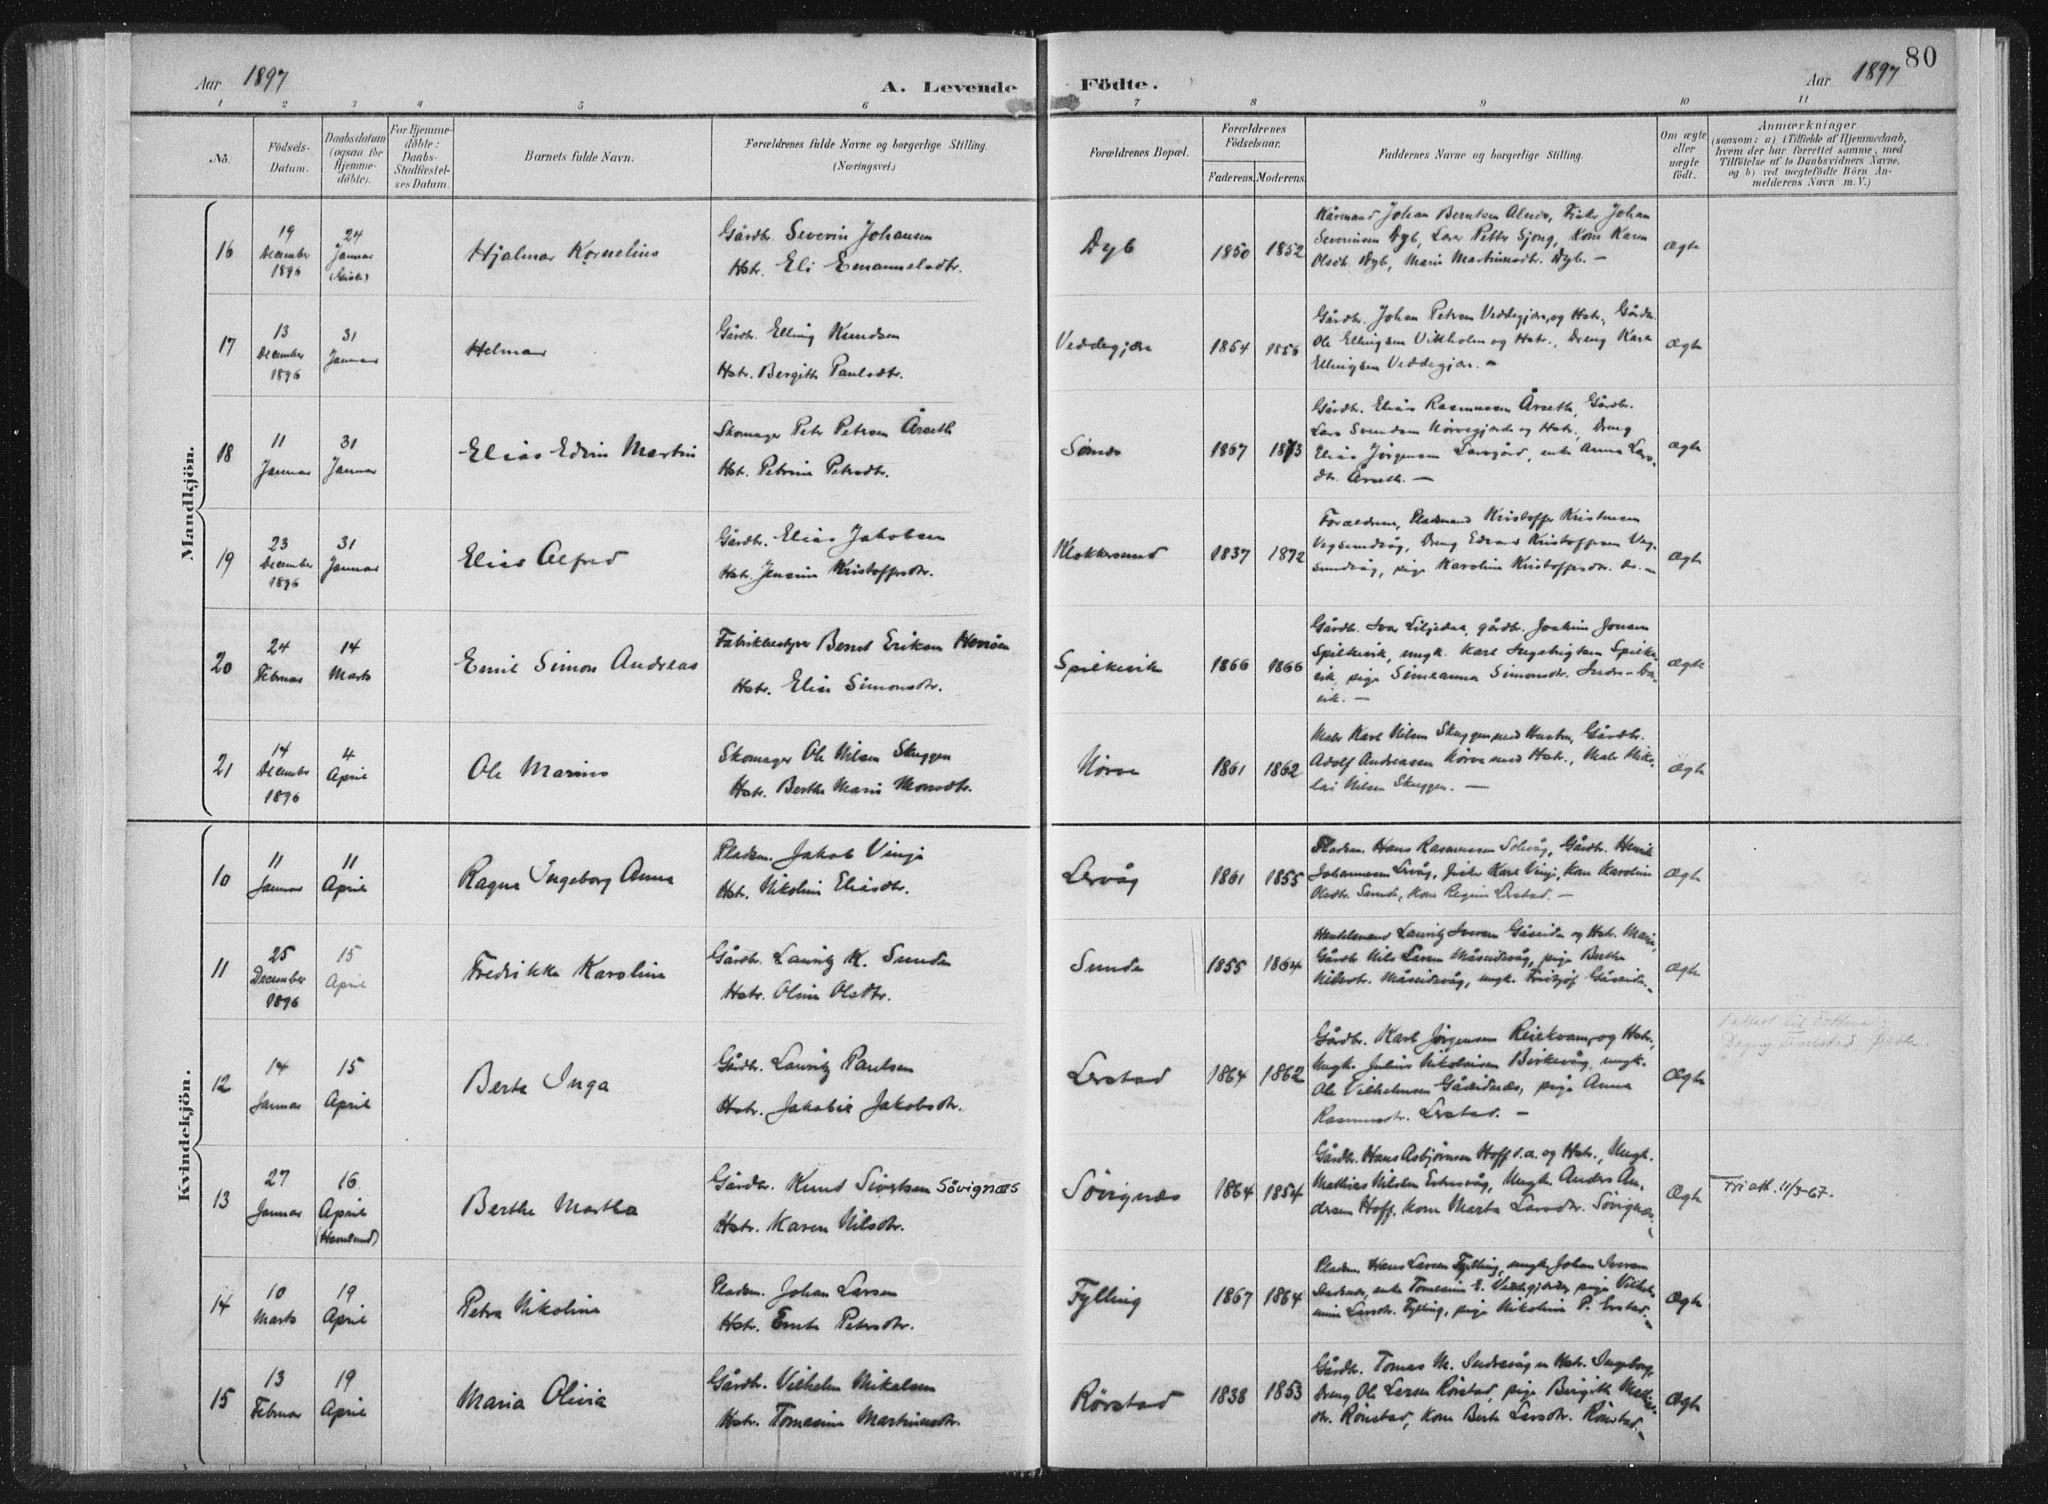 Aar 1897
A. Levende
Födte.
Aar 1897
80
1 2 3 4 5 6 7 8 9 10 11
No.
Födsels-
Datum.
Daabsdatum
(ogsaa for
Hjemme-
döbte).
For Hjemme-
döbte:
Daabs-
Stadfæstel-
ses Datum.
Barnets fulde Navn.
Forældrenes fulde Navne og borgerlige Stilling.
(Næringsvei.)
Forældrenes Bopæl.
Forældrenes
Födselsaar.
Faderens. Moderens.
Faddernes Navne og borgerlige Stilling.
Om ægte
eller
uægte
födt.
Anmærkninger
(saasom: a) i Tilfælde af Hjemmedaab,
hvem der har forrettet samme, med
Tilföielse af to Daabsvidners Navne,
og b) ved uægtefödte Börn An-
melderens Navn m. V.)
Mandkjön.
16
19
December
1896
24
Januar
Hjalmar Kornelius
Gårdbr. Severin Johansen
Hstr. Eli Emanuelsdtr.
Dyb
1850 1852
Kårmand Johan Berntsen Alnes, Fisker Johan
Severinsen Dyb, Lærer Petter Sjong, Kone Karen
Olsdtr. Dyb, Marie Martinusdtr. Dyb. —
Ægte
17
13
December
1896
31
Januar
Helmar
Gårdbr. Elling Knudsen
Hstr. Bergitte Paulsdtr.
Veddegjerde
1854 1856
Gårdbr. Johan Petersen Veddegjerde og Hstr., Gårdbr.
Ole Ellingsen Vikholen og Hstr., Dreng Karl
Ellingsen Veddegjerde. —
Ægte
18
11
Januar
31
Januar
Elias Edvin Martin
Skomager Peter Petersen Årseth
Hstr. Petrine Petersdtr.
Sömes
1867 1873
Gårdbr. Elias Rasmussen Årseth, Gårdbr.
Lars Svendsen Nörvegjerde og Hstr., Dreng
Elias Jørgensen Larsgård, enke Anna Lars-
dtr. Årseth. —
Ægte
19
23
December
1896
31
Januar
Elias Alfred
Gårdbr. Elias Jakobsen
Hstr. Jensine Kristoffersdtr.
Klokkersund
1837 1872
Forældrene, Pladsmand Kristoffer Kristensen
Vegsundvåg, Dreng Edvard Kristoffersen Veg-
sundvåg, pige Karoline Kristoffersdtr. ds. —
Ægte
20
24
Februar
14
Marts
Emil Simon Andreas
Fabrikbestyrer Bernt Eriksen Henrön
Hstr. Elise Simonsdtr.
Spilkevik
1866 1866
Gårdbr. Ivar Liljedal, gårdbr. Joakim Jonsen
Spilkevik, ungk. Karl Ingebrigtsen Spilke-
vik, pige Simeanna Simonsdtr. Indre-
vik. —
Ægte
21
14
December
1896
4
April
Ole Marius
Skomager Ole Nilsen Skuggen
Hstr. Berthe Marie Monsdtr.
Nörve
1861 1862
Maler Karl Nilsen Skuggen med Hustru, Gårdbr.
Adolf Andreassen Nörve med Hstr., Maler Niko-
lai Nilsen Skuggen. —
Ægte
Kvindekjön.
10
11
Januar
11
April
Ragna Ingeborg Anna
Pladsm. Jakob Vinje
Hstr. Nikoline Eliasdtr.
Lervåg
1861 1855
Pladsm. Hans Rasmussen Solvåg, Gårdbr. Henrik
Johannesen Lervåg, fisker Karl Vinje, Kone Karoline
Olsdtr. Sunde, kone Regine Lerstad. —
Ægte
11
25
December
1896
15
April
Fredrikke Karoline
Gårdbr. Lauritz K. Sunde
Hstr. Oline Olsdtr.
Sunde
1855 1864
Handelsmand Lauritz Iversen Gåseide og Hstr. Marie,
Gårdbr. Nils Larsen Måseidvåg, pige Berthe
Nilsdtr. Måseidvåg, ungk. Fritjof Gåseide. —
Ægte
12
14
Januar
15
April
Berte Inga
Gårdbr. Lauritz Paulsen
Hstr. Jakobie Jakobsdtr.
Lerstad
1864 1862
Gårdbr. Karl Jørgensen Reiekvam og Hstr.,
Ungk. Julius Nikolaisen Birkevåg, ungk.
Ole Vilhelmsen Gåseidnes, pige Anna
Rasmusdtr. Lerstad. —
Ægte
13
27
Januar
16
April
(Hamnsund)
Berthe Martha
Gårdbr. Knud Sivertsen Sövignæs
Hstr. Karen Nilsdtr.
Sövignæs
1864 1854
Gårdbr. Hans Asbjørnsen Hoff s.a. og Hstr., Ungk.
Mathias Nilsen Eikevåg, Ungk. Anders An-
dersen Hoff, kone Marte Larsdtr. Sövignæs. —
Ægte
Friatt. 11/3-67.
14
10
Marts
19
April
Petra Nikoline
Pladsm. Johan Larsen
Hstr. Ernte Petersdtr.
Fylling
1867 1864
Pladsm. Hans Larsen Fylling, ungk. Johan Iversen
enke Tomasine E. Veddegjerde, pige Vilhel-
mine Larsdtr. Fylling, pige Nikoline P. Erstad. —
Ægte
15
13
Februar
19
April
Maria Olivia
Gårdbr. Vilhelm Mikalsen
Hstr. Tomasine Martinusdtr.
Rörstad
1838 1853
Gårdbr. Tomas M. Indrevåg m Hstr. Ingeborg,
Dreng Ole Larsen Rörstad, pige Birgitte
dtr. Rörstad, kone Berte Larsdtr. Rörstad. —
Ægte